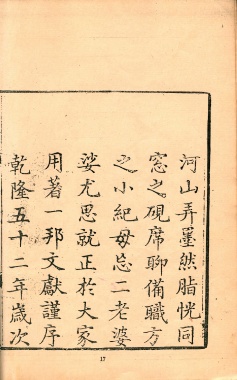 河山弄墨然脂恍同
窓之硯席聊備職方
之小紀毋忘二老婆
娑尤思就正於大家
用著一邦文獻謹序
乾隆五十二年歲次
17